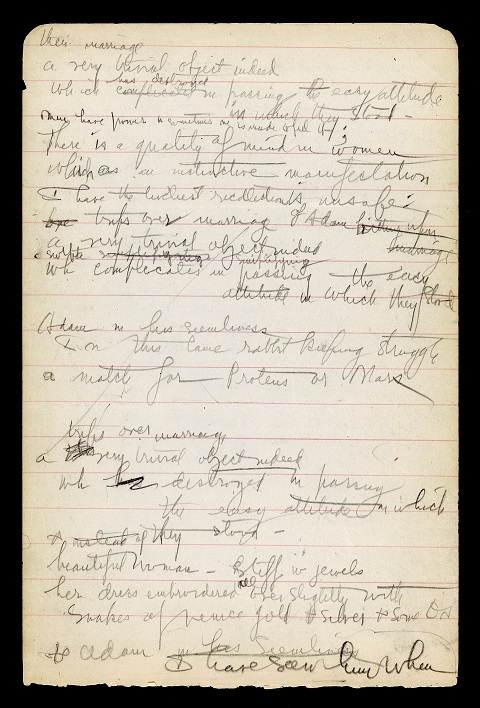 their marriage
a very trivial object indeed
has destroyed
which complicates in passing the easy attitude
in which they stood -
may have power sometimes is made to feel it;
There is a quality of mind in women
which is an instinctive manifestation
I have the liveliest recollection
trips over marriage & Adam
a very trivial object indeed
wh complicates in passing the easy
attitude in which they stood
Adam in his seemliness
I in this lame rabbit struggle
a match for Proteus or Mars
trips over marriage
a very trivial object indeed
wh destroyed in passing
the easy attitude in which
& instead of they stood -
beautiful woman - Stiff w jewels
her dress embroidered all over slightly with
snakes of Venice gold & silver & some Os
to Adam in his seemliness
I have seen him when